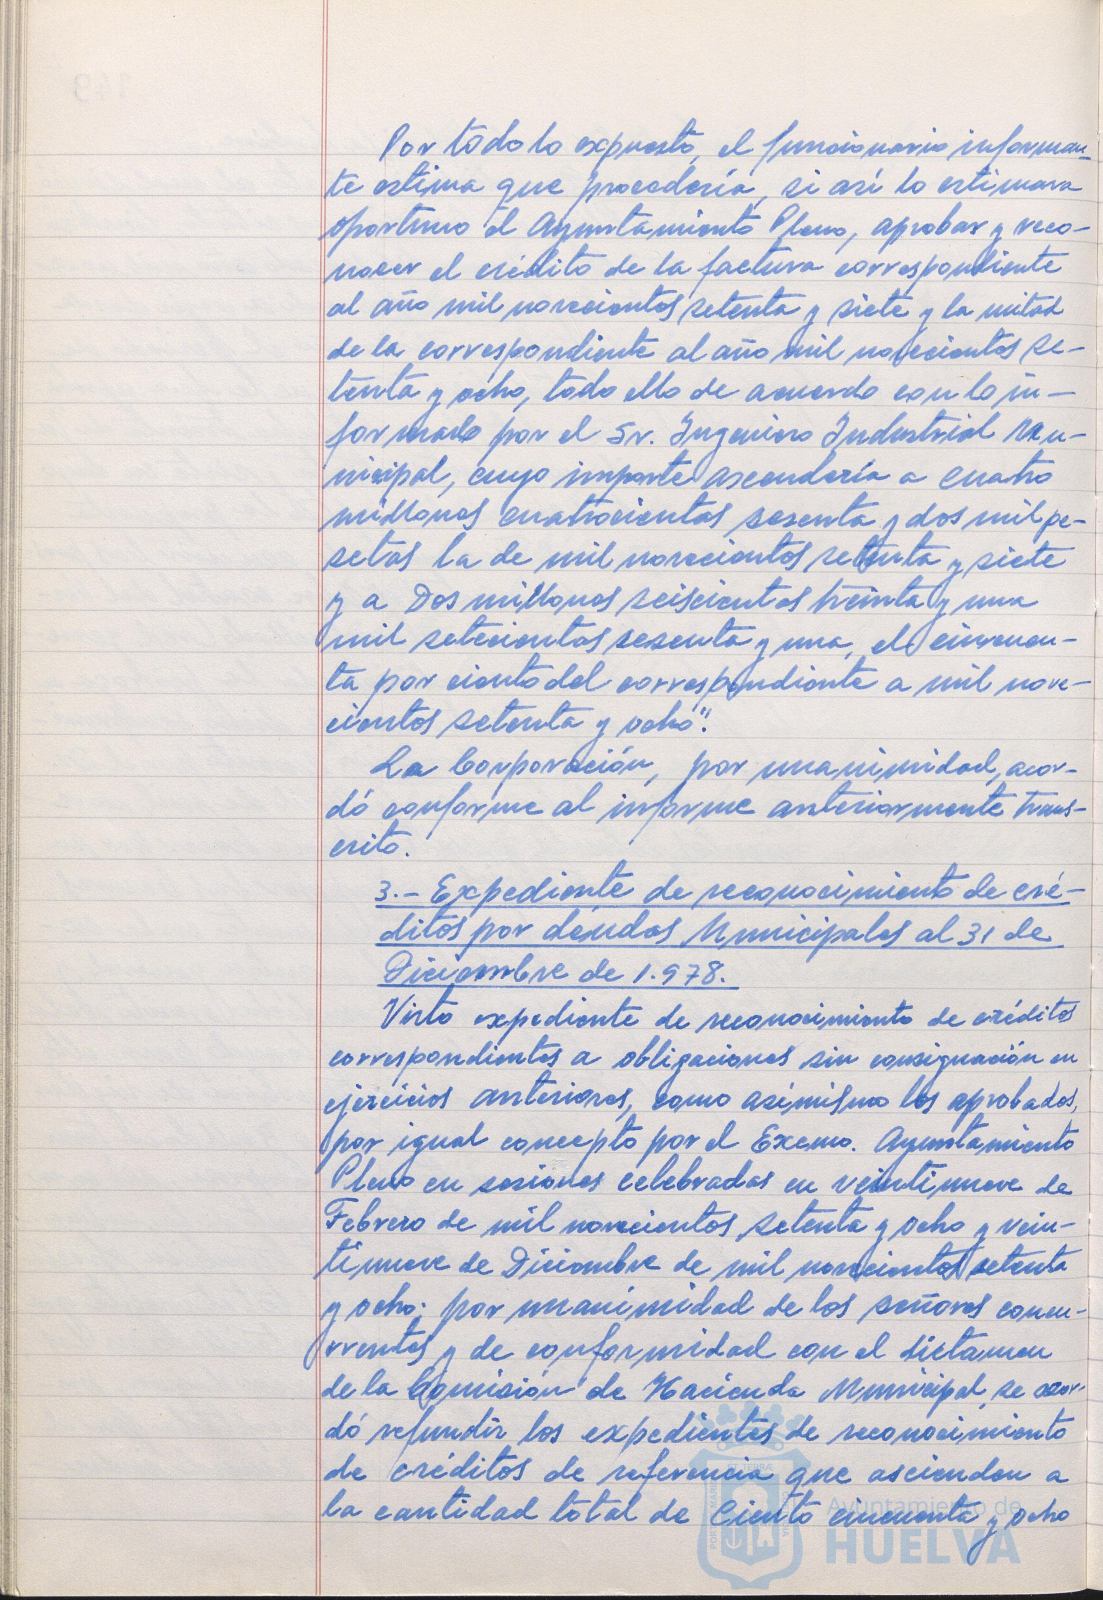 Por todo lo expuesto, el funcionario informan-
te estima que procedería, si así lo estimara
oportuno el Ayuntamiento Pleno, aprobar y reco-
nocer el crédito de la factura correspondiente
al año mil novecientos setenta y siete y la mitad
de la correspondiente al año mil novecientos se-
tenta y ocho, todo ello de acuerdo con lo in-
formado por el Sr. Ingeniero Industrial Mu-
nicipal, cuyo importe ascendería a cuatro
millones cuatrocientas sesenta y dos mil pe-
setas la de mil novecientos setenta y siete
y a Dos millones seiscientas treinta y una
mil setecientas sesenta y una, el cincuen-
ta por ciento del correspondiente a mil nove-
cientos setenta y ocho".
La Corporación, por unanimidad, acor-
dó conforme al informe anteriormente trans-
crito.
3.- Expediente de reconocimiento de cré-
ditos por deudas Municipales al 31 de
Diciembre de 1.978.
Visto expediente de reconocimiento de créditos
correspondientes a obligaciones sin consignación en
ejercicios anteriores, como asimismo los aprobados,
por igual concepto por el Excmo. Ayuntamiento
Pleno en sesiones celebradas en veintinueve de
Febrero de mil novecientos setenta y ocho y vein-
tinueve de Diciembre de mil novecientos setenta
y ocho; por unanimidad de los señores concu-
rrentes y de conformidad con el dictamen
de la Comisión de Hacienda Municipal, se acor-
dó refundir los expedientes de reconocimiento
de créditos de referencia que ascienden a
la cantidad total de Ciento cincuenta y ocho
Ayuntamiento de
HUELVA